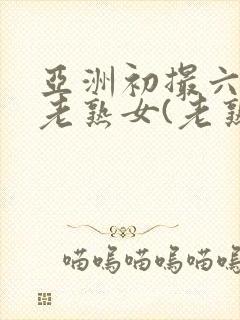 亞洲初撮六
老熟女(老熟
喵嗚喵嗚喵嗚